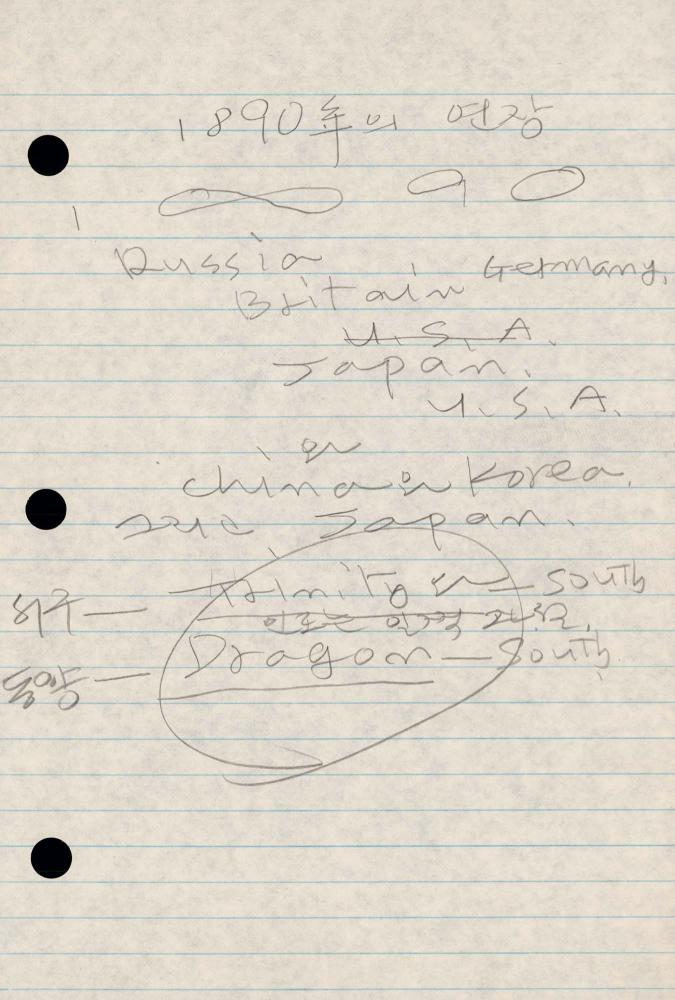 1890年의 연장
1 ∞ 9 0
Russia
Germany,
Britain
U.S.A.
Japan.
U.S.A.
와
China와 Korea.
그리고 Japan.
Trinity와 — South
Dragon — South
동양 —